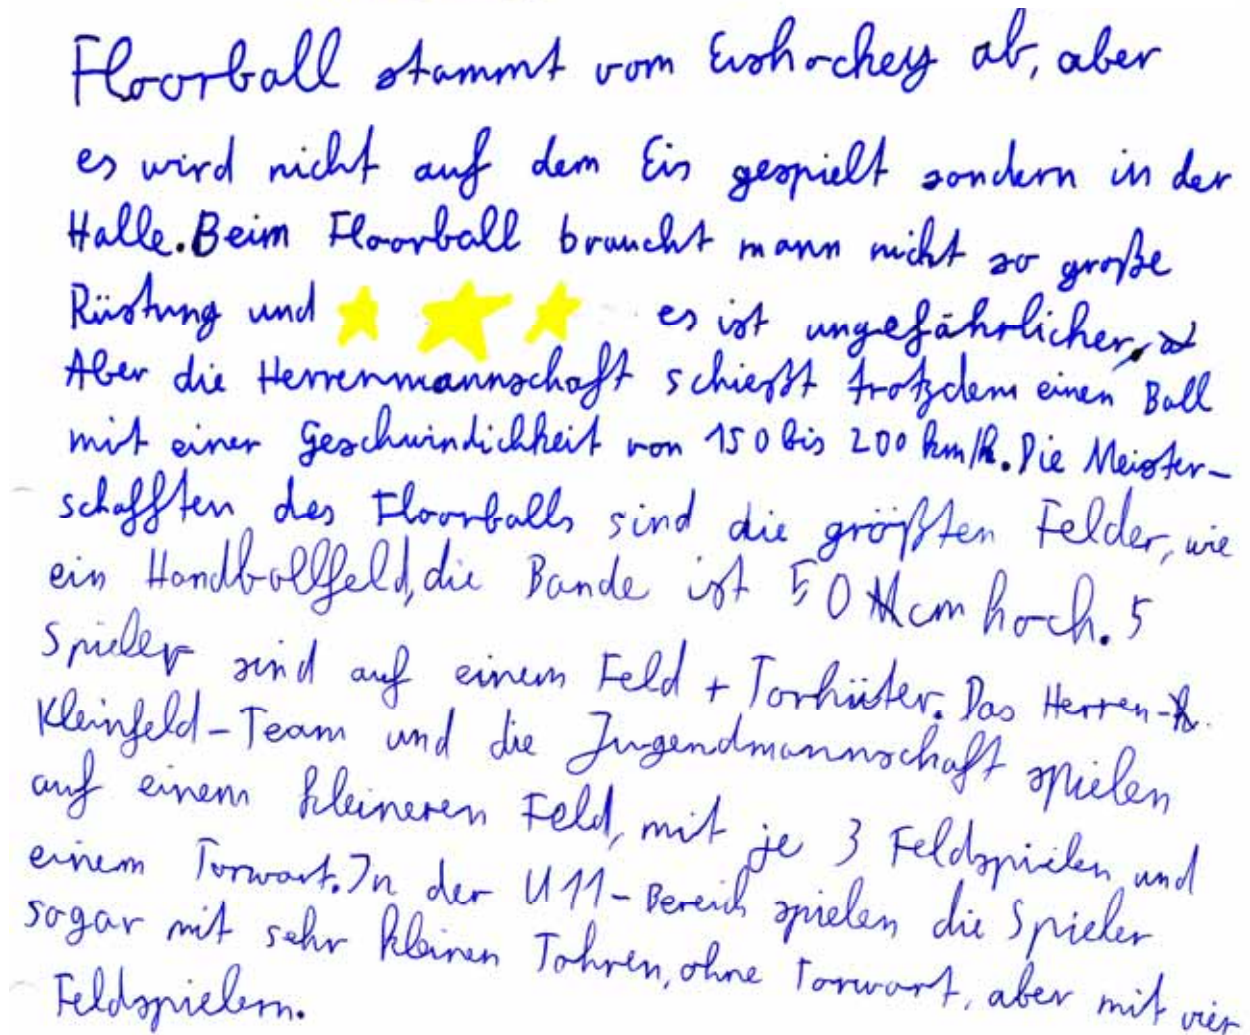 Floorball stammt vom Eishockey ab, aber
es wird nicht auf dem Eis gespielt sondern in der
Halle. Beim Floorball braucht mann nicht so große
Rüstung und es ist ungefährlicher.
Aber die Herrenmannschaft schießt trotzdem einen Ball
mit einer Geschwindichkeit von 150 bis 200 km/h. Die Meister-
schafften des Floorballs sind die größten Felder, wie
ein Handballfeld, die Bande ist 50 cm hoch. 5
Spieler sind auf einem Feld + Torhüter. Das Herren-
Kleinfeld-Team und die Jugendmannschaft spielen
auf einem kleineren Feld, mit je 3 Feldspielen und
einem Torwart. In der U11-Bereich spielen die Spieler
sogar mit sehr kleinen Tohren, ohne Torwart, aber mit vier
Feldspielern.